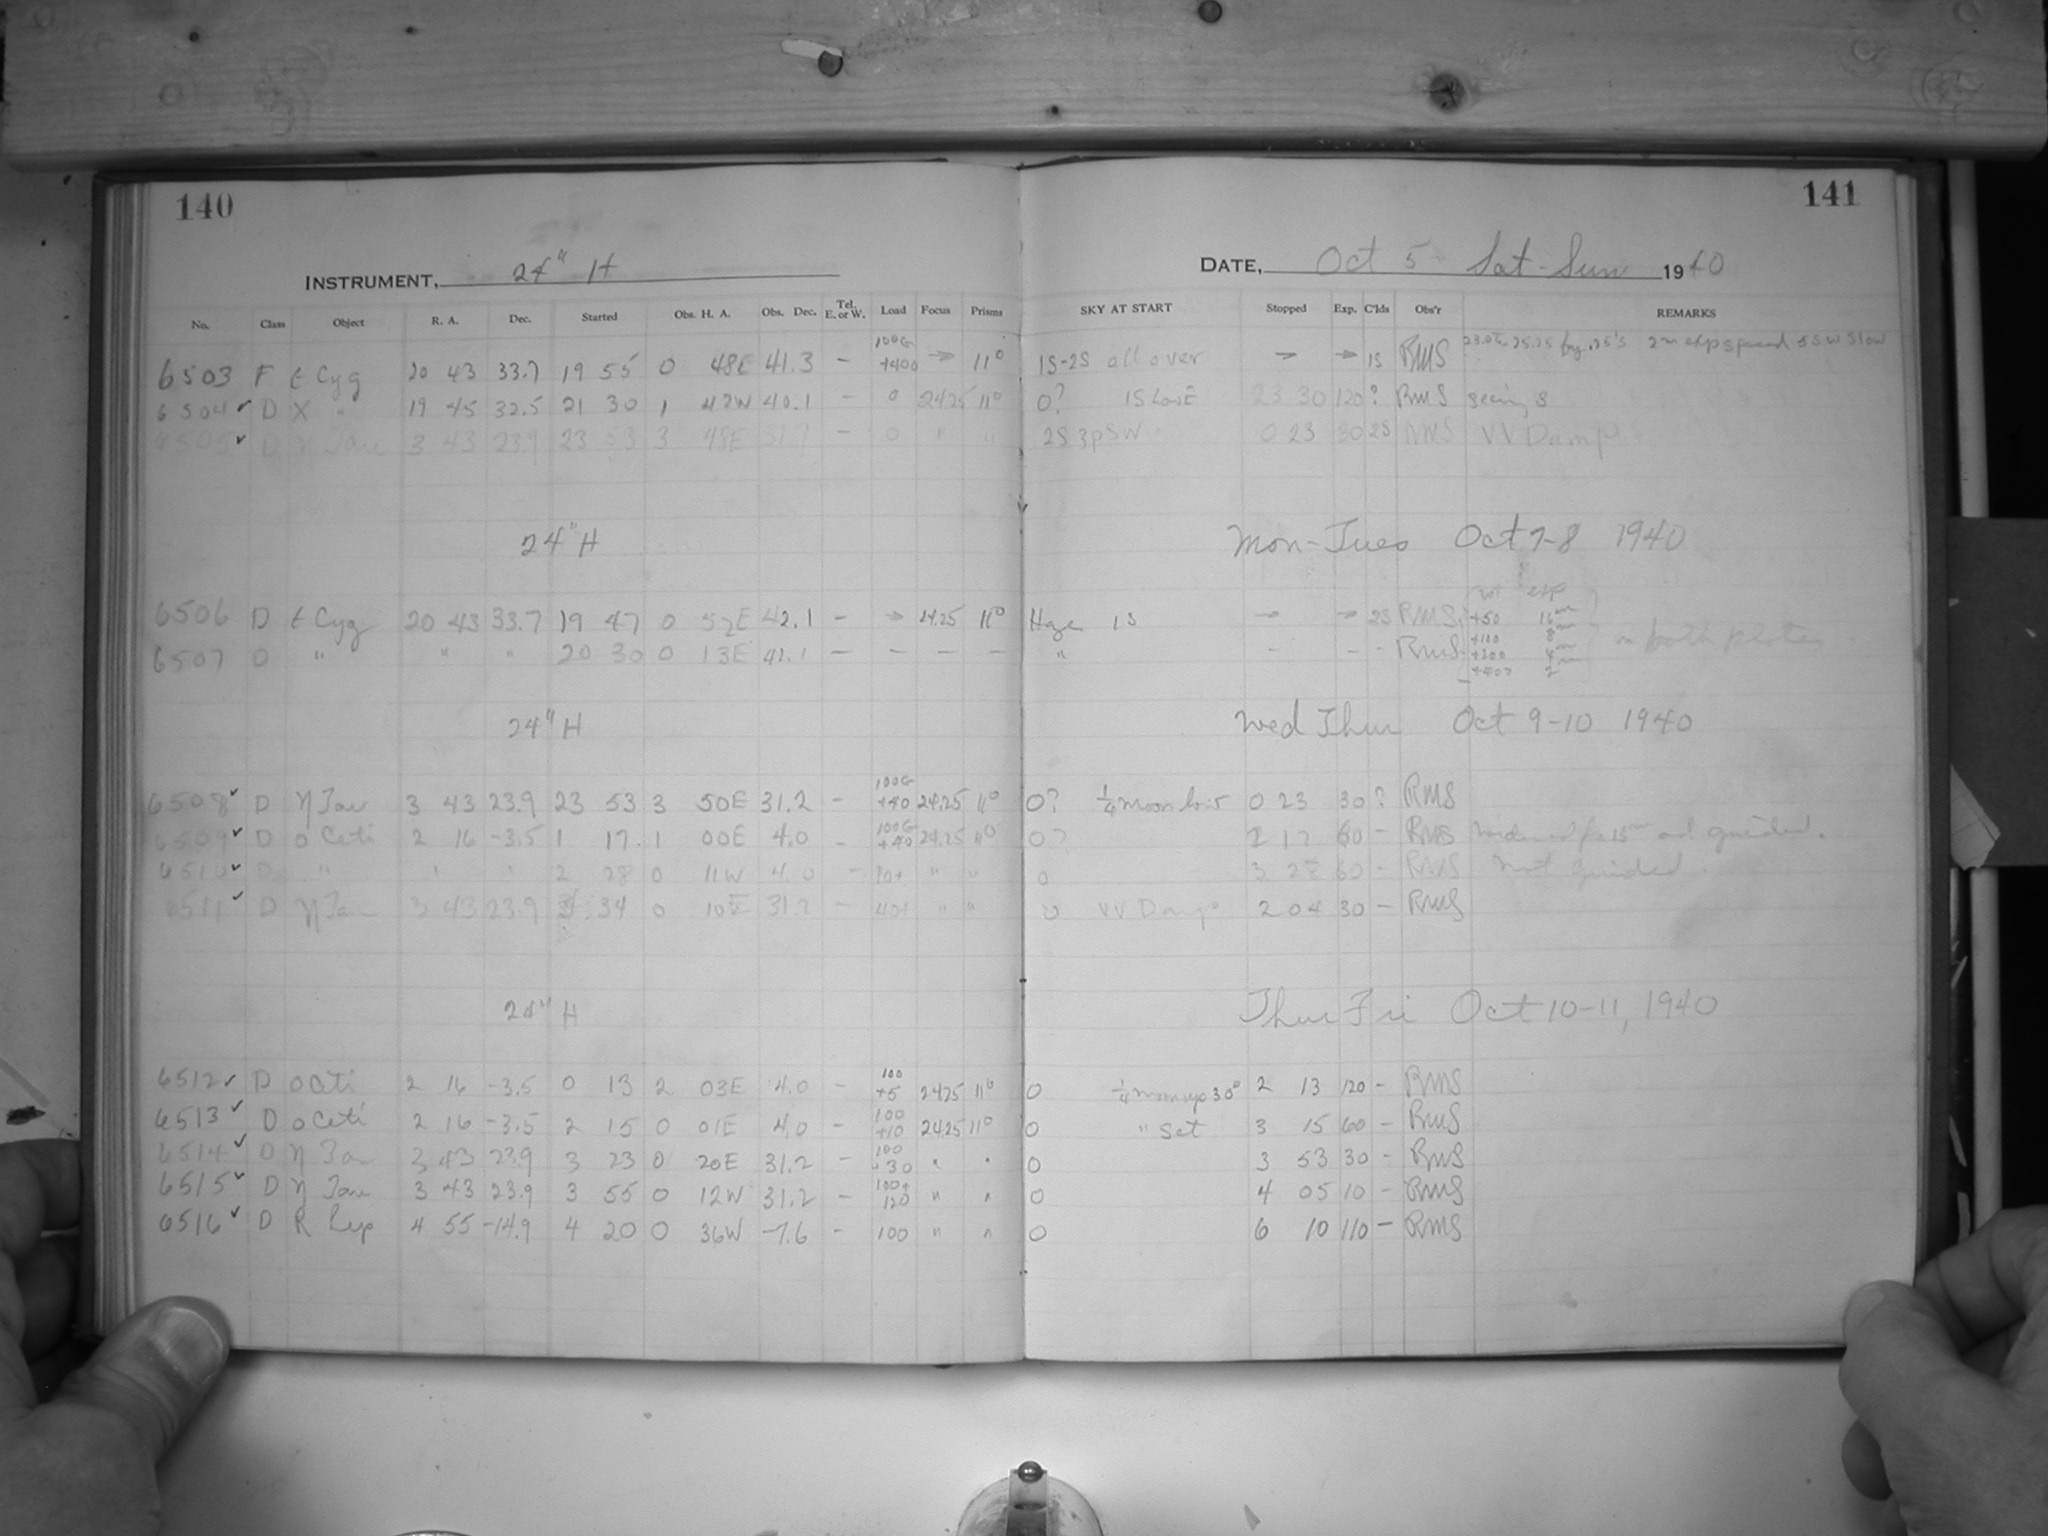 140
141
INSTRUMENT, 24" H
DATE, Oct 5 Sat-Sun 1940
No. Class Object R. A. Dec. Started Obs. H. A. Obs. Dec. Tel. E. or W. Load Focus Prisms SKY AT START Stopped Exp. C'lds Obs'r REMARKS
6503 F ε Cyg 20 43 33.7 19 55 0 48E 41.3 - 100G +400 → 11° 1S-2S all over → → 1S RMS 23.0 to 25.25 by .25's 2m exp spaced 5S W Slow
6504 ✓ D X " 19 45 32.5 21 30 1 42W 40.1 - 0 24.25 11° 0? 1S Low E 23 30 120 ? RMS seeing 8
6505 ✓ D η Tau 3 43 23.9 23 53 3 48E 31.7 - 0 " " 2S 3pSW 0 23 30 2S RMS VV Damp
24" H
Mon-Tues Oct 7-8 1940
6506 D ε Cyg 20 43 33.7 19 47 0 57E 42.1 - → 24.25 11° Haze 1S → → 2S RMS
6507 D " " " 20 30 0 13E 42.1 - - - - " - - - RMS
wt exp
+50 16m
+100 8m
+200 4m
+400 2m
on both plates
24" H
Wed Thur Oct 9-10 1940
6508 ✓ D η Tau 3 43 23.9 23 53 3 50E 31.2 - 100G +40 24.25 11° 0? ¼ moon low 0 23 30 ? RMS
6509 ✓ D o Ceti 2 16 -3.5 1 17 1 00E 4.0 - 100G +40 24.25 11° 0? 2 17 60 - RMS Widened for 15m and guided.
6510 ✓ D " " " 2 28 0 11W 4.0 - 10+ " " 0 3 28 60 - RMS Not guided.
6511 ✓ D η Tau 3 43 23.9 34 0 10E 31.2 - 40+ " " 0 VV Damp 2 04 30 - RMS
24" H
Thur Fri Oct 10-11, 1940
6512 ✓ D o Ceti 2 16 -3.5 0 13 2 03E 4.0 - 100 +5 24.25 11° 0 ¼ moon up 30° 2 13 120 - RMS
6513 ✓ D o Ceti 2 16 -3.5 2 15 0 01E 4.0 - 100 +10 24.25 11° 0 " Set 3 15 60 - RMS
6514 ✓ D η Tau 3 43 23.9 3 23 0 20E 31.2 - 100 +30 " " 0 3 53 30 - RMS
6515 ✓ D η Tau 3 43 23.9 3 55 0 12W 31.2 - 100+ 120 " " 0 4 05 10 - RMS
6516 ✓ D R Lep 4 55 -14.9 4 20 0 36W -7.6 - 100 " " 0 6 10 110 - RMS